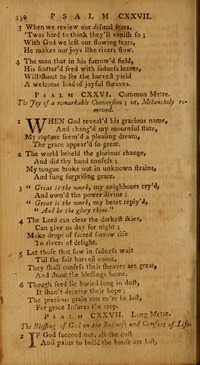 230 PSALM CXXVII.
3 When we review our dismal fears,
'Twas hard to think they'll vanish so;
With God we left our flowing tears,
He makes our joys like rivers flow.
4 The man that in his furrow'd field,
His scatter'd seed with sadness leaves,
Will shout to see the harvest yield
A welcome load of joyful sheaves.
PSALM CXXVI. Common Metre.
The Joy of a remarkable Conversion; or, Melancholy re-
moved.
1 WHEN God reveal'd his gracious name,
And chang'd my mournful state,
My rapture seem'd a pleasing dream,
The grace appear'd so great.
2 The world beheld the glorious change,
And did thy hand confess;
My tongue broke out in unknown strains,
And sung surprising grace.
3 "Great is the work, my neighbours cry'd,
And own'd the power divine:
"Great is the work, my heart reply'd,
"And be the glory thine."
4 The Lord can clear the darkest skies,
Can give us day for night;
Make drops of sacred sorrow rise
To rivers of delight.
5 Let those that sow in sadness wait
Till the fair harvest come,
They shall confess their sheaves are great,
And shout the blessings home.
6 Though seed lie buried long in dust,
It shan't deceive their hope;
The precious grain can ne'er be lost,
For grace insures the crop.
PSALM CXXVII. Long Metre.
The Blessing of God on the Business and Comforts of Life.
1 IF God succeed not, all the cost
And pains to build the house are lost,